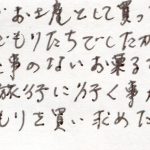 お土産として買っ
もりたちでしたが
事のないお菓子
旅行に行く事
もりを買い求めた